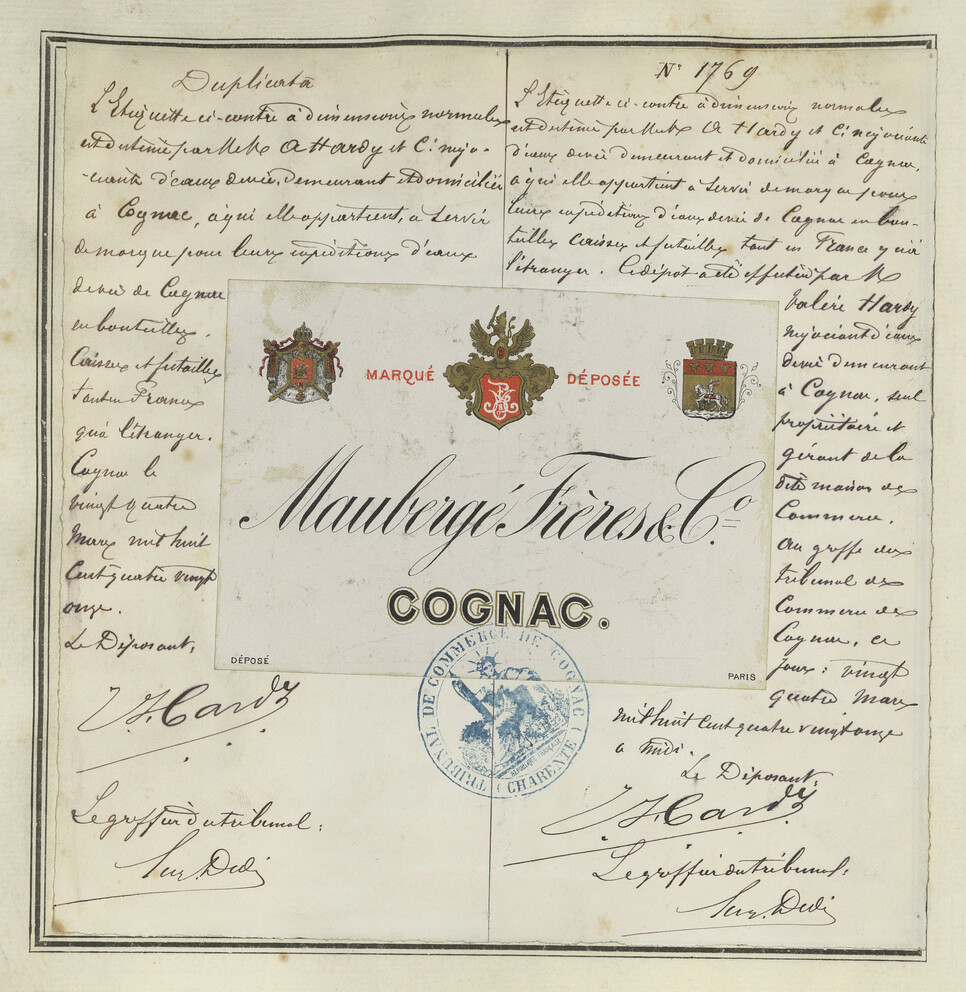 Duplicata
L'Etiquette ci-contre à dimensions normales
est destinée par M A Hardy et Cie négo-
ciants d'eaux de vie, demeurant et domiciliés
à Cognac, à qui elle appartient, à servir
de marque pour leurs expéditions d'eaux
de vie de Cognac
en bouteilles,
Caisses et futailles
tant en France
qu'à l'étranger.
Cognac le
vingt quatre
Mars mil huit
Cent quatre vingt
onze.
Le Déposant,
Hardy
Le greffier du tribunal :
N° 1769
L'Etiquette ci-contre à dimensions normales
est destinée par A Hardy et Cie négociants
d'eaux de vie demeurant et domiciliés à Cognac,
à qui elle appartient à servir de marque pour
leurs expéditions d'eaux de vie de Cognac en bou-
teilles Caisses et futailles tant en France qu'à
l'étranger. Ce dépôt a été effectué par M
Valère Hardy
négociant d'eaux
de vie demeurant
à Cognac, seul
propriétaire et
gérant de la
dite maison de
Commerce.
Au greffe du
tribunal de
Commerce de
Cognac, ce
jour : vingt
quatre Mars
mil huit Cent quatre vingt onze
à midi.
Le Déposant,
Hardy
Le greffier du tribunal :
MARQUÉ DÉPOSÉE
Maubergé Frères & Co.
COGNAC.
DÉPOSÉ
PARIS
TRIBUNAL DE COMMERCE DE COGNAC
(CHARENTE)
RÉPUBLIQUE FRANÇAISE